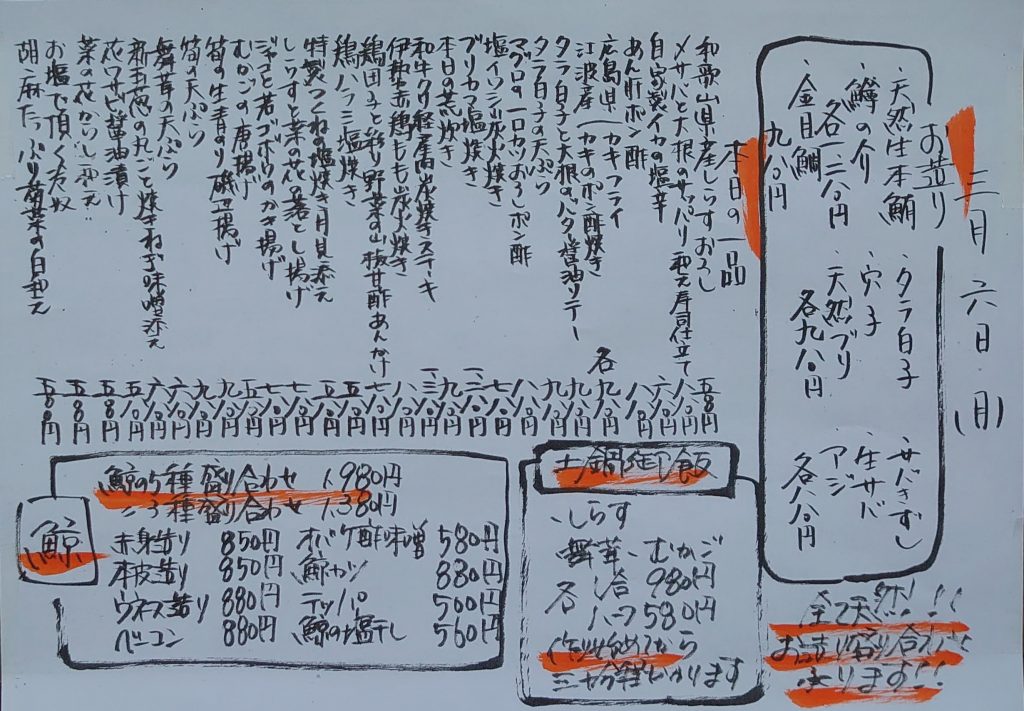 三月六日(月)
お造り
・天然生本鮪
・鰆の介り
各一二八〇円
・金目鯛
九八〇円
・タラ白子
・穴子
・天然ブリ
各九八〇円
・サバきずし
・生サバ
・アジ
各八八〇円
全て天然!!
お造り盛り合わせ
承ります!!
本日の一品
和歌山県産しらすおろし 五八〇円
〆サバと大根のサッパリ和え寿司仕立て 八八〇円
自家製イカの塩辛 六八〇円
あん肝ポン酢 八八〇円
広島県 カキフライ
江波産 カキのポン酢焼き 各九八〇円
タラ白子と大根のバタ醤油ソテー 九八〇円
タラ白子の天ぷら 九八〇円
マグロの一口カツおろしポン酢 八八〇円
塩イワシ炭火焼き 七八〇円
ブリカマ塩焼き
本日の荒炊き 九八〇円
和牛クリ軽炭火焼きステーキ
伊勢赤鶏もも炭火焼き
鶏団子と彩り野菜の山椒甘酢あんかけ
鶏ハラミ塩焼き 五八〇円
特製つくねの塩焼き月見添え 五八〇円
しらすと菜の花の落とし揚げ 七八〇円
ジャコと若ゴボウのかき揚げ 七八〇円
むかごの唐揚げ 五八〇円
筍の生青のり磯辺揚げ 九八〇円
筍の天ぷら 九八〇円
舞茸の天ぷら 六八〇円
新玉葱の丸ごと焼きねぎ味噌添え 六八〇円
花ワサビ醤油漬け 五八〇円
菜の花からし和え 五八〇円
お塩で頂く冷奴 五八〇円
胡麻たっぷり菊菜の白和え 五八〇円
土鍋御飯
・しらす
・舞茸・むかご
各 一合 980円
ハーフ 580円
作り始めてから
三十分程かかります
鯨
鯨の5種盛り合わせ 1,980円
〃3種盛り合わせ 1,380円
赤身造り 850円
本皮造り 850円
ウネス造り 880円
ベーコン 880円
オバケ酢味噌 580円
鯨カツ 880円
テッパ 500円
鯨の塩干し 560円